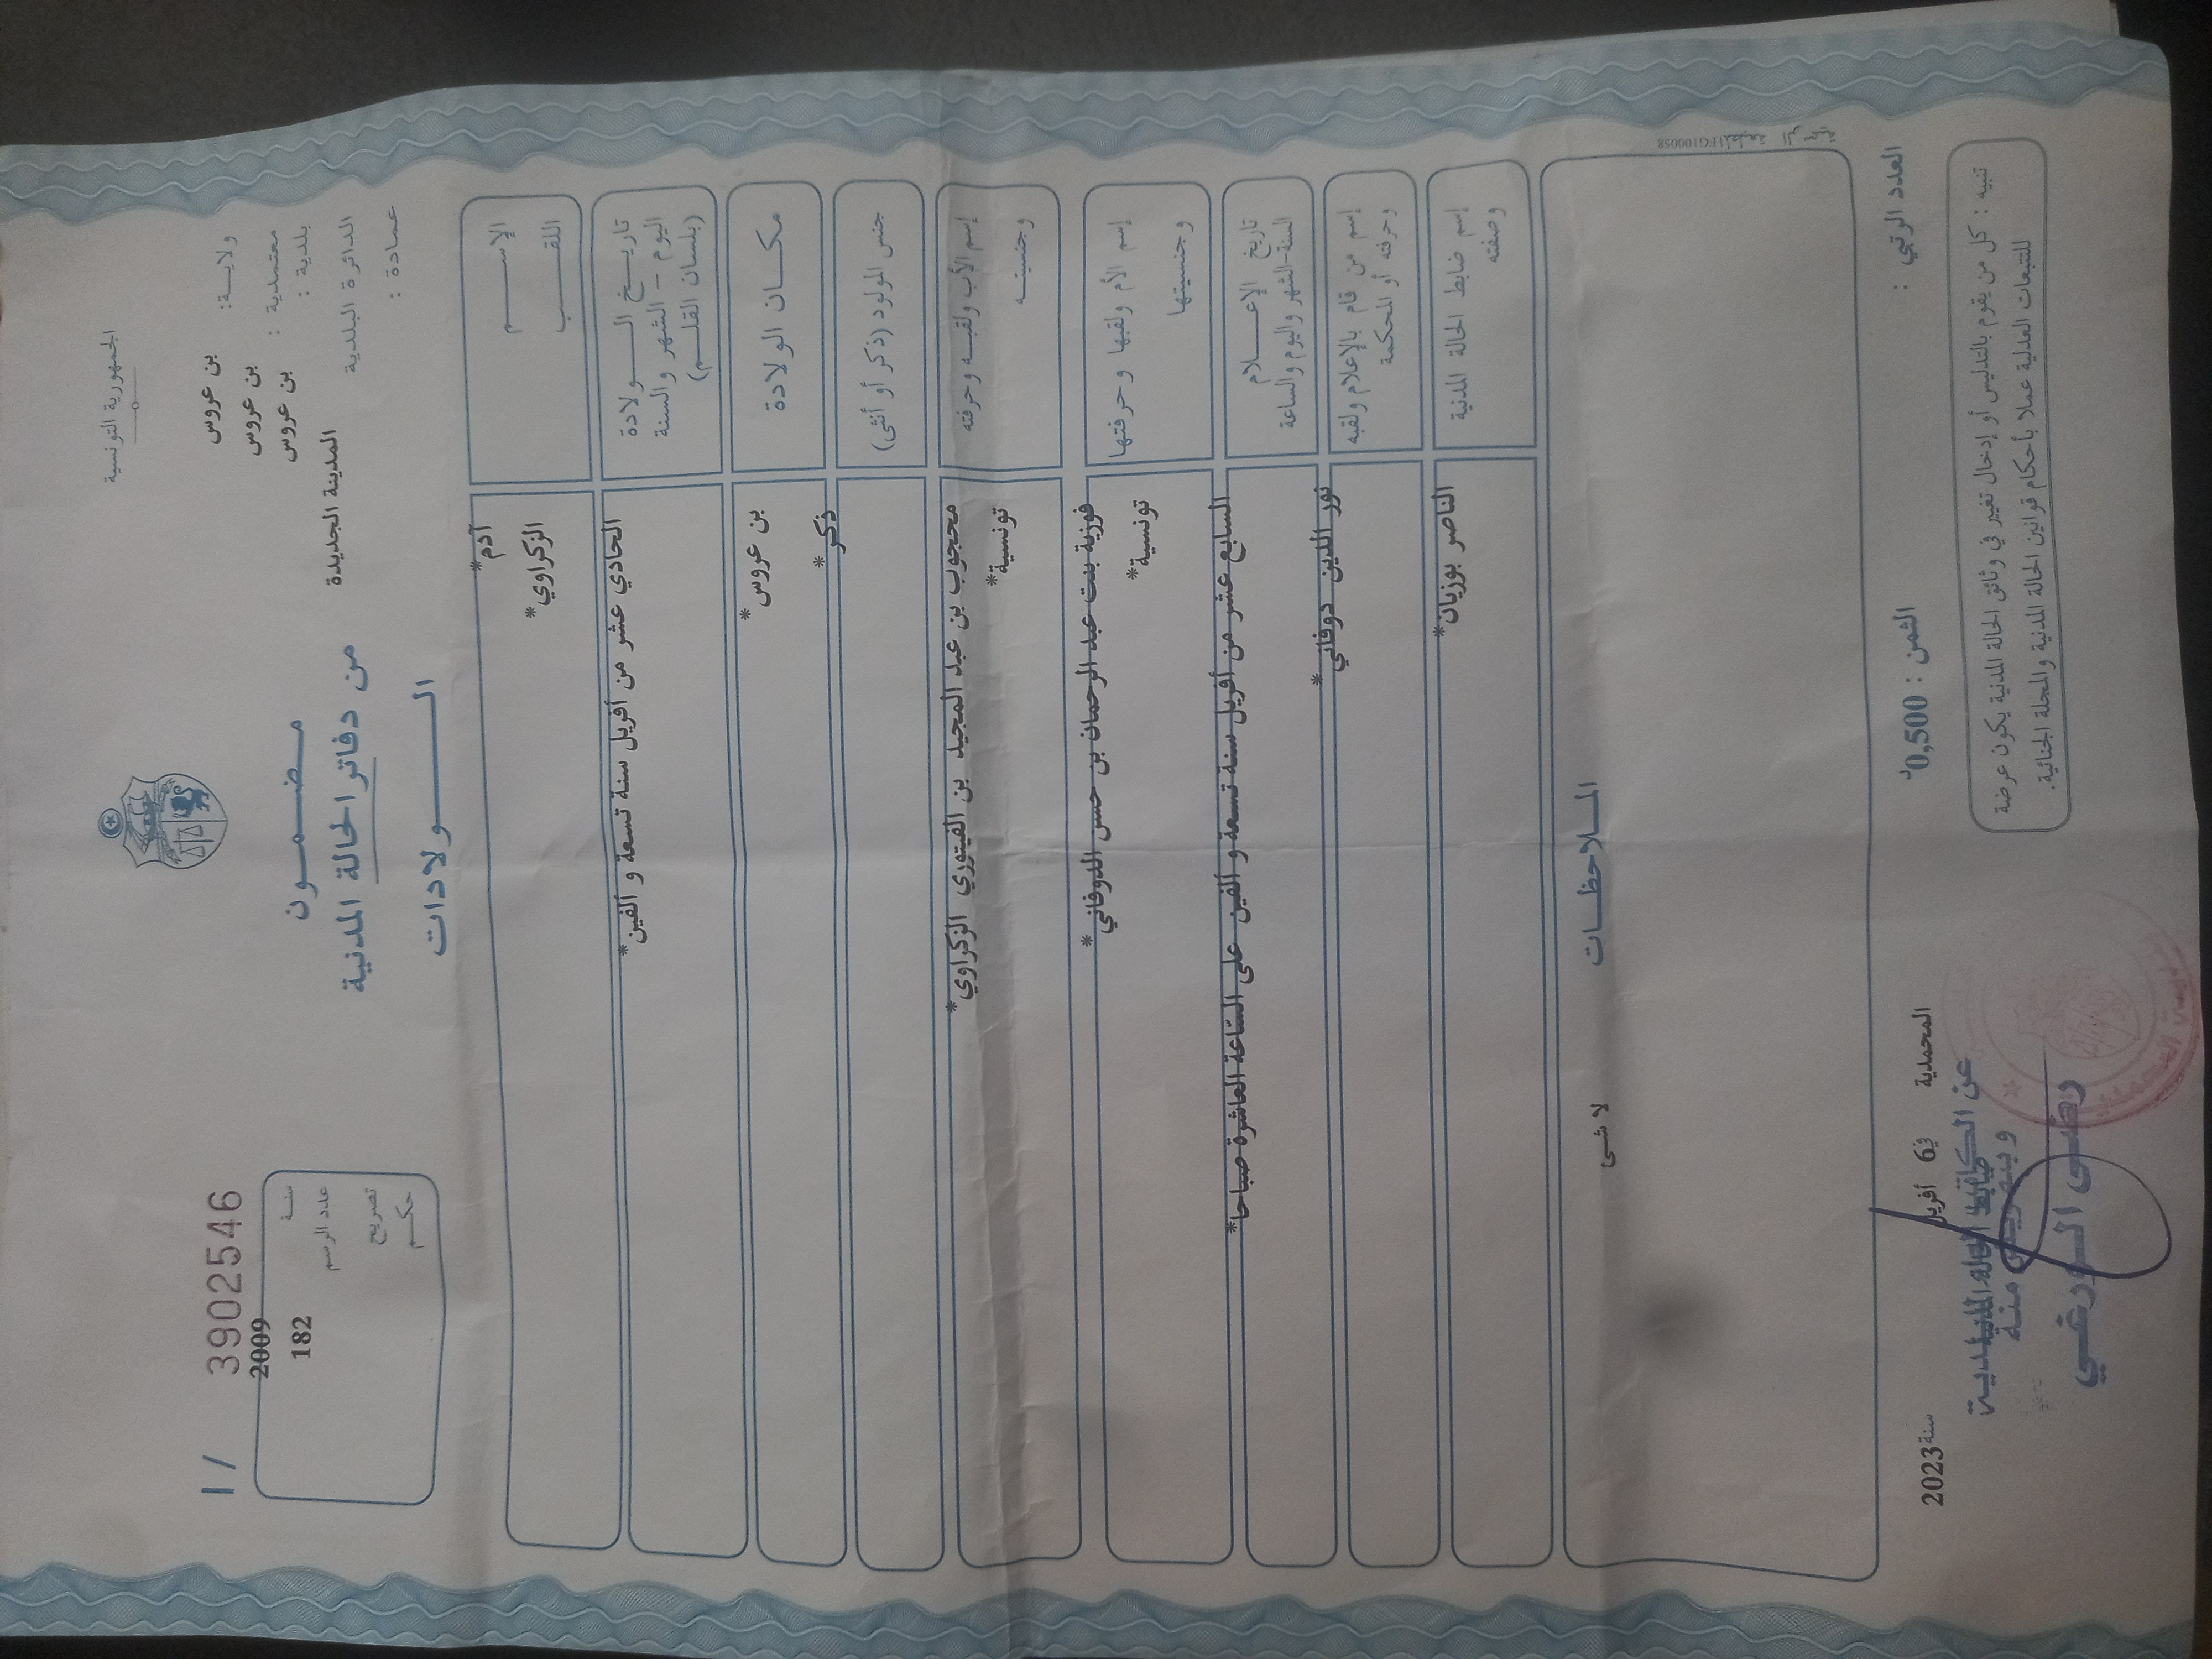 الجمهورية التونسية
ولاية: بن عروس
معتمدية : بن عروس
بلدية : بن عروس
الدائرة البلدية المدينة الجديدة
عمادة :
مضمون
من دفاتر الحالة المدنية
الولادات
1/ 3902546
سنة 2009
عدد الرسم 182
تصريح
حكم
الإسم آدم*
اللقب الزكراوي*
تاريخ الولادة
اليوم - الشهر والسنة
(بلسان القلم)
الحادي عشر من أفريل سنة تسعة و ألفين*
مكان الولادة بن عروس*
جنس المولود (ذكر أو أنثى) ذكر*
إسم الأب ولقبه وحرفته محجوب بن عبد المجيد بن الفيتوري الزكراوي*
وجنسيته تونسية*
إسم الأم ولقبها وحرفتها فوزية بنت عبد الرحمان بن حسن الدوفاني*
وجنسيتها تونسية*
تاريخ الإعلام
السنة-الشهر واليوم والساعة
السابع عشر من أفريل سنة تسعة و ألفين على الساعة العاشرة صباحا*
إسم من قام بالإعلام ولقبه
وحرفته أو المحكمة
نور الدين دوفاني*
إسم ضابط الحالة المدنية
وصفته
الناصر بوزيان*
الملاحظات
لا شى
العدد الرتبي :
الثمن : 0,500د
المحمدية في 6 أفريل سنة 2023
عن الكاتب العام للبلدية
ضابط الحالة المدنية
وبتفويض منه
رضى الورشي
تنبيه : كل من يقوم بالتدليس أو إدخال تغيير في وثائق الحالة المدنية يكون عرضة
للتتبعات العدلية عملا بأحكام قوانين الحالة المدنية والمجلة الجنائية.